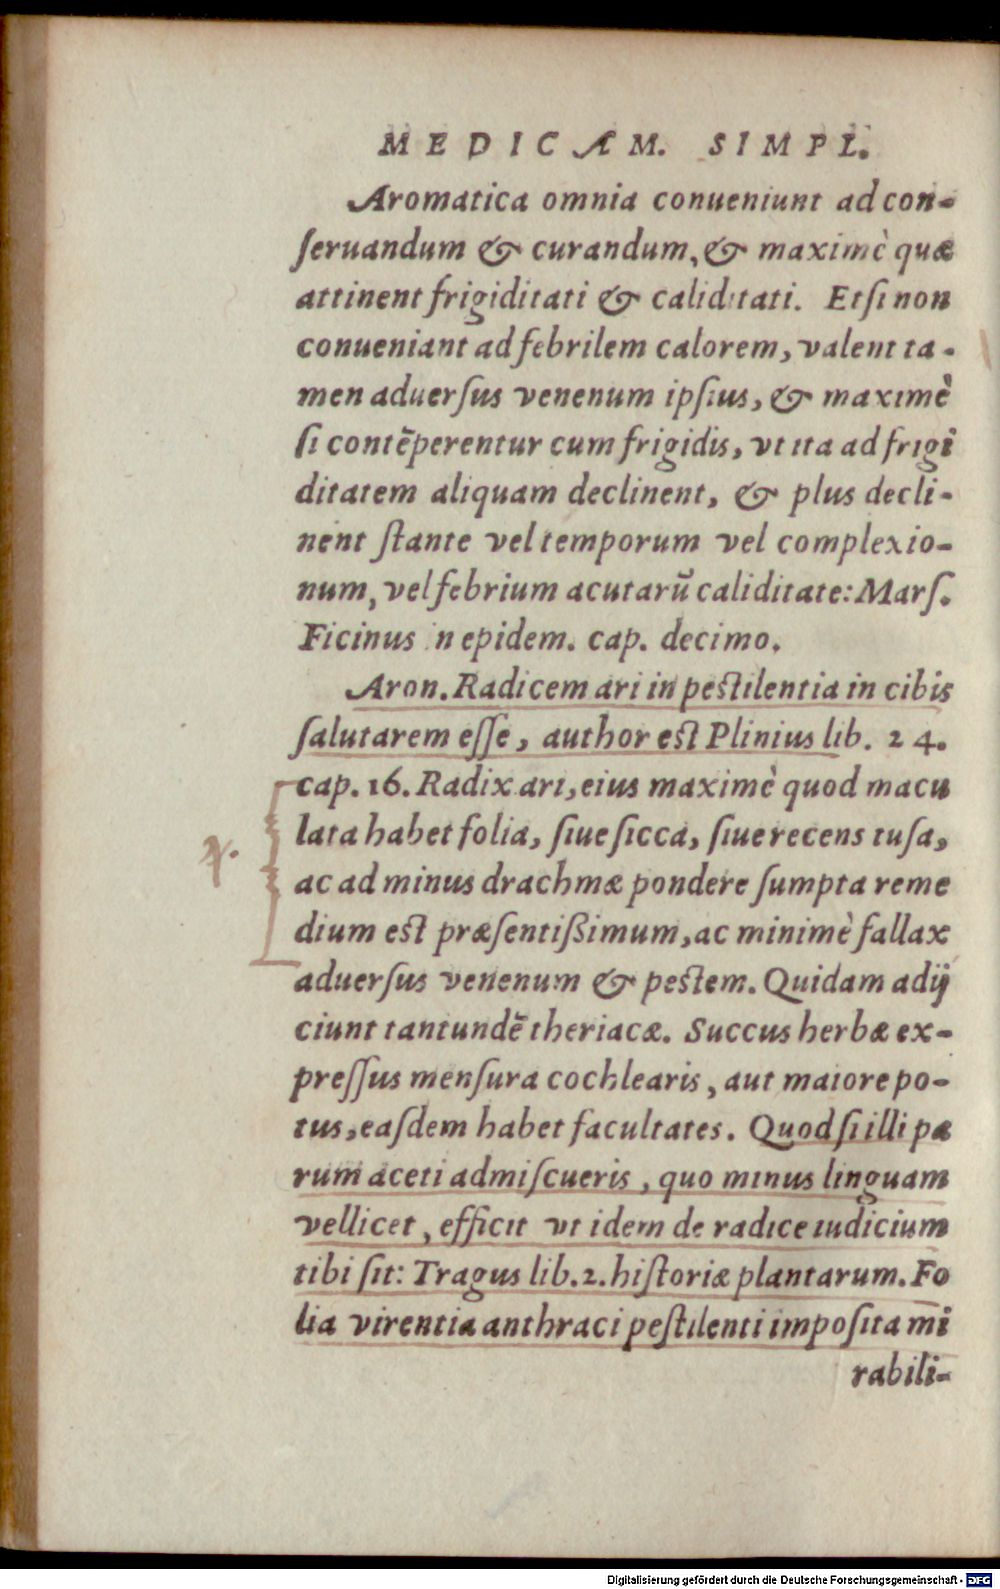 MEDICAM. SIMPL.
Aromatica omnia conueniunt ad con-
ſeruandum & curandum, & maximè quæ
attinent frigiditati & caliditati. Etſi non
conueniant ad febrilem calorem, valent ta-
men aduerſus venenum ipſius, & maximè
ſi contēperentur cum frigidis, vt ita ad frigi
ditatem aliquam declinent, & plus decli-
nent ſtante vel temporum vel complexio-
num, vel febrium acutarū caliditate: Marſ.
Ficinus in epidem. cap. decimo.
Aron. Radicem ari in peſtilentia in cibis
ſalutarem eſſe, author eſt Plinius lib. 24.
cap. 16. Radix ari, eius maximè quod macu
lata habet folia, ſiue ſicca, ſiue recens tuſa,
ac ad minus drachmæ pondere ſumpta reme
dium eſt præſentißimum, ac minimè fallax
aduerſus venenum & peſtem. Quidam adij
ciunt tantundē theriacæ. Succus herbæ ex-
preſſus menſura cochlearis, aut maiore po-
tus, eaſdem habet facultates. Quod ſi illi pa
rum aceti admiſcueris, quo minus linguam
vellicet, efficit vt idem de radice iudicium
tibi ſit: Tragus lib. 2. hiſtoriæ plantarum. Fo
lia virentia anthraci peſtilenti impoſita mi
rabili-
Digitalisierung gefördert durch die Deutsche Forschungsgemeinschaft - DFG